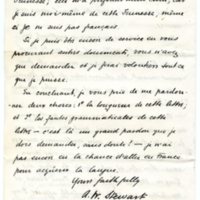 jeunesse, 
je suis moi-même de cette jeunesse, même
si je ne suis pas français
Si je puis être encore de service en vous
procurant autres documents, vous n'avez
que demander et je ferai volontiers tout ce
que je puisse.
En concluant, je vous prie de me pardonner
deux choses: 1º la longueur de cette lettre,
et 2º les fautes grammaticales de cette
lettre - c'est là un grand pardon que je
dois demander, sans doute! - je n'ai
pas encore eu la chance d'aller en France
pour acquérir la langue.
Yours faithfully
A. W. Stewart